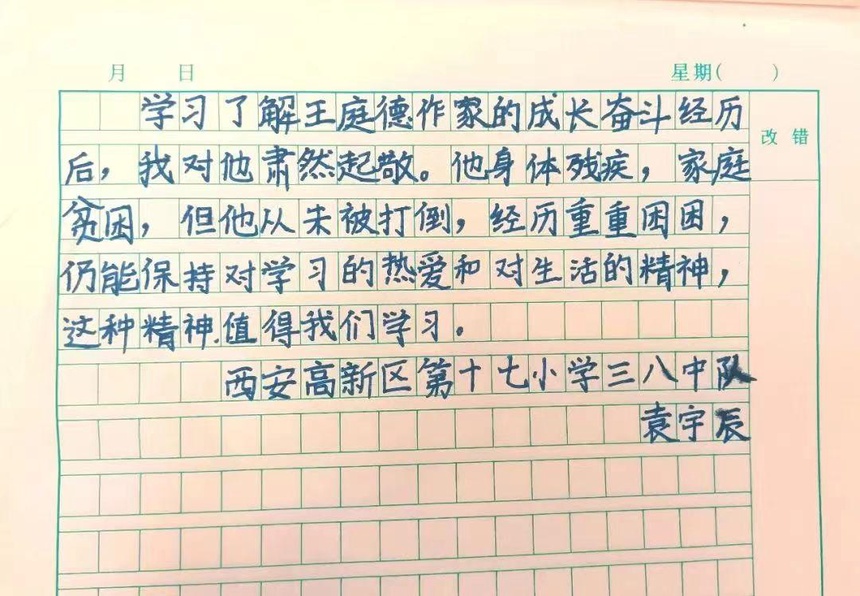 月 日 星期( )
改错
学习了解王庭德作家的成长奋斗经历
后，我对他肃然起敬。他身体残疾，家庭
贫困，但他从未被打倒，经历重重困困，
仍能保持对学习的热爱和对生活的精神，
这种精神.值得我们学习。
西安高新区第十七小学三八中队
袁宇辰